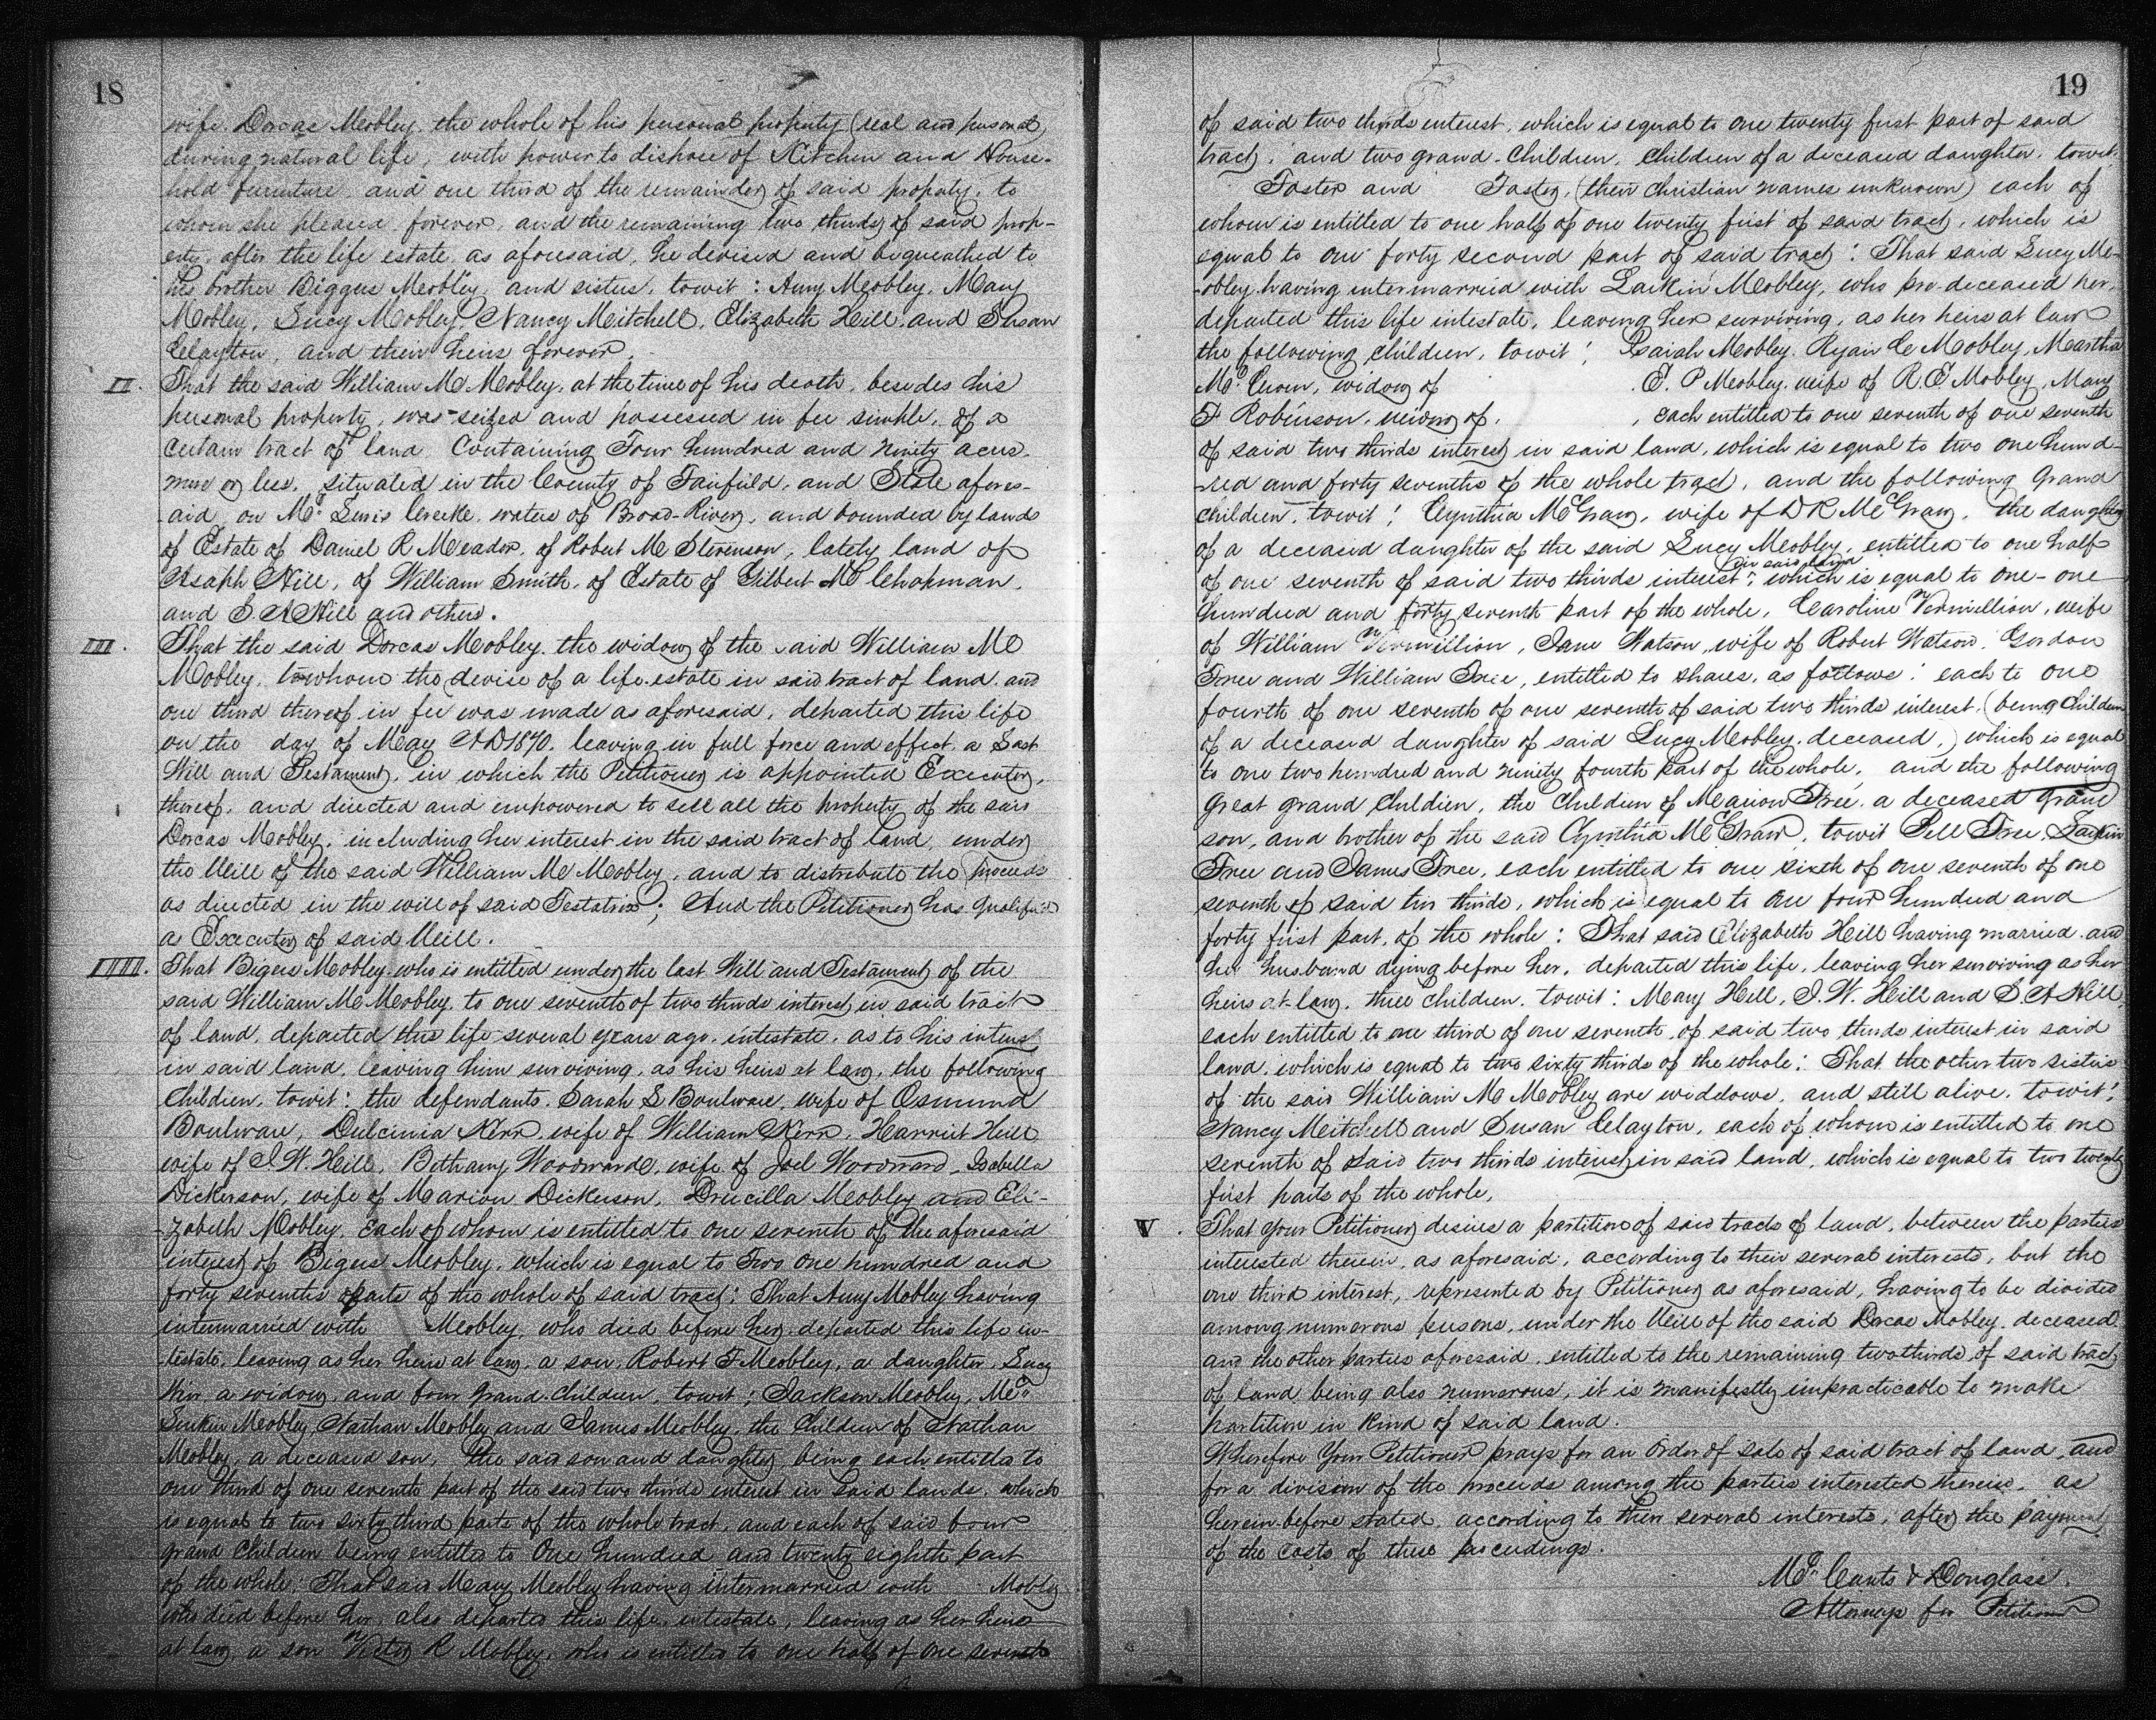 18
wife Dorcas Mobley, the whole of his personal property (real and personal)
during natural life, with power to dispose of Kitchen and House-
hold furniture and one third of the remainder of said property, to
whom she pleased forever, and the remaining two thirds of said prop-
erty, after the life estate as aforesaid, he devised and bequeathed to
his brother Biggus Mobley, and sisters, towit: Amy Mobley, Mary
Mobley, Lucy Mobley, Nancy Mitchell, Elizabeth Hill, and Susan
Clayton, and their heirs forever.
II. That the said William M Mobley, at the time of his death, besides his
personal property, was seized and possessed in fee simple, of a
certain tract of land Containing Four hundred and ninety acres,
more or less, situated in the County of Fairfield, and State afores-
-aid, on Mc Creeke, waters of Broad-River, and bounded by lands
of Estate of Daniel R Meador, of Robert M Stevenson, lately land of
Asaph Hill, of William Smith, of Estate of Gilbert M Chapman,
and S. A Hill and others.
III. That the said Dorcas Mobley, the widow of the said William M
Mobley, to whom the devise of a life estate in said tract of land and
one third thereof in fee was made as aforesaid, departed this life
on the day of May AD 1870. leaving in full force and effect, a Last
Will and Testament, in which the Petitioner is appointed Executor,
thereof, and directed and empowered to sell all the property of the said
Dorcas Mobley, including her interest in the said tract of land, under
the Will of the said William M Mobley, and to distribute the proceeds
as directed in the will of said Testatrix; And the Petitioner has qualified
as Executor of said Will.
IIII. That Bigers Mobley who is entitled under the last Will and Testament of the
said William M Mobley, to one seventh of two thirds interest in said tract
of land, departed this life several years ago, intestate, as to his interest
in said land, leaving him surviving, as his heirs at law, the following
Children, towit: the defendants, Sarah S Boulware, wife of Osmund
Boulware, Dulcinia Kerr, wife of William Kerr, Harriet Hill
wife of J. W. Hill, Bethany Woodward, wife of Joel Woodward, Isabella
Dickerson, wife of Marion Dickerson, Drucilla Mobley and Eli-
-zabeth Mobley, Each of whom is entitled to one seventh of the aforesaid
interest of Bigers Mobley, which is equal to Two One hundred and
forty sevenths parts of the whole of said tract: That Amy Mobley having
intermarried with Mobley, who died before her, departed this life in-
-testate, leaving as her heirs at law, a son, Robert F Mobley, a daughter, Lucy
a widow, and four grand-children, towit; Jackson Mobley, Mc
Mobley, Nathan Mobley and James Mobley, the Children of Nathan
Mobley, a deceased son, the said son and daughter being each entitled to
one third of one seventh part of the said two thirds interest in said lands, which
is equal to two sixty third parts of the whole tract, and each of said four
grand Children being entitled to One hundred and twenty eighth part
of the whole; That said Mary Mobley having intermarried with Mobley
who died before her, also departed this life, intestate, leaving as her heirs
at law, a son Victor R Mobley, who is entitled to one half of one seventh
19
of said two thirds interest, which is equal to one twenty first part of said
tract, and two grand-Children, Children of a deceased daughter, towit,
Foster and Foster, (their christian names unknown) each of
whom is entitled to one half of one twenty first of said tract, which is
equal to one forty second part of said tract: That said Lucy Mo-
-bley having intermarried with Larkin Mobley, who pre-deceased her,
departed this life intestate, leaving her surviving, as her heirs at law
the following Children, towit; Isaiah Mobley, Ryan C Mobley, Martha
Mc , widow of , E. P Mobley, wife of R. E Mobley, Mary
F Robinson, widow of , each entitled to one seventh of one seventh
of said two thirds interest in said land, which is equal to two one hund-
-red and forty sevenths of the whole tract, and the following Grand
Children, towit: Cynthia McGraw, wife of D R McGraw, the daughter
of a deceased daughter of the said Lucy Mobley, entitled to one half
of one seventh of said two thirds interest, which is equal to one-one
hundred and forty seventh part of the whole, Caroline Vermillion, wife
of William Vermillion, Jane Watson, wife of Robert Watson, Gordon
Free and William Free, entitled to shares, as follows: each to one
fourth of one seventh of one seventh of said two thirds interest, (being Children
of a deceased daughter of said Lucy Mobley, deceased,) which is equal
to one two hundred and ninety fourth part of the whole, and the following
Great grand Children, the Children of Marion Free, a deceased grand
son, and brother of the said Cynthia McGraw, towit Pell Free, Larkin
Free and James Free, each entitled to one sixth of one seventh of one
seventh of said two thirds, which is equal to One four hundred and
forty first part, of the whole: That said Elizabeth Hill having married and
her husband dying before her, departed this life, leaving her surviving as her
heirs at law, three Children, towit: Mary Hill, J. W. Hill and S. A Hill
each entitled to one third of one seventh of said two thirds interest in said
land, which is equal to two sixty thirds of the whole: That the other two sisters
of the said William M Mobley are widows, and still alive, towit:
Nancy Mitchell and Susan Clayton, each of whom is entitled to one
seventh of said two thirds interest in said land, which is equal to two twenty
first parts of the whole.
V. That Your Petitioner desires a partition of said tracts of land, between the parties
interested therein, as aforesaid, according to their several interests, but the
one third interest, represented by Petitioner as aforesaid, having to be divided
among numerous persons, under the Will of the said Dorcas Mobley, deceased,
and the other parties aforesaid, entitled to the remaining two thirds, of said tract
of land being also numerous, it is manifestly impracticable to make
partition in kind of said land.
Wherefore Your Petitioner prays for an Order of Sale of said tract of land, and
for a division of the proceeds among the parties interested therein, as
herein before stated, according to their several interests, after the payment
of the costs of these proceedings.
McCants & Douglass,
Attorneys for Petitioner